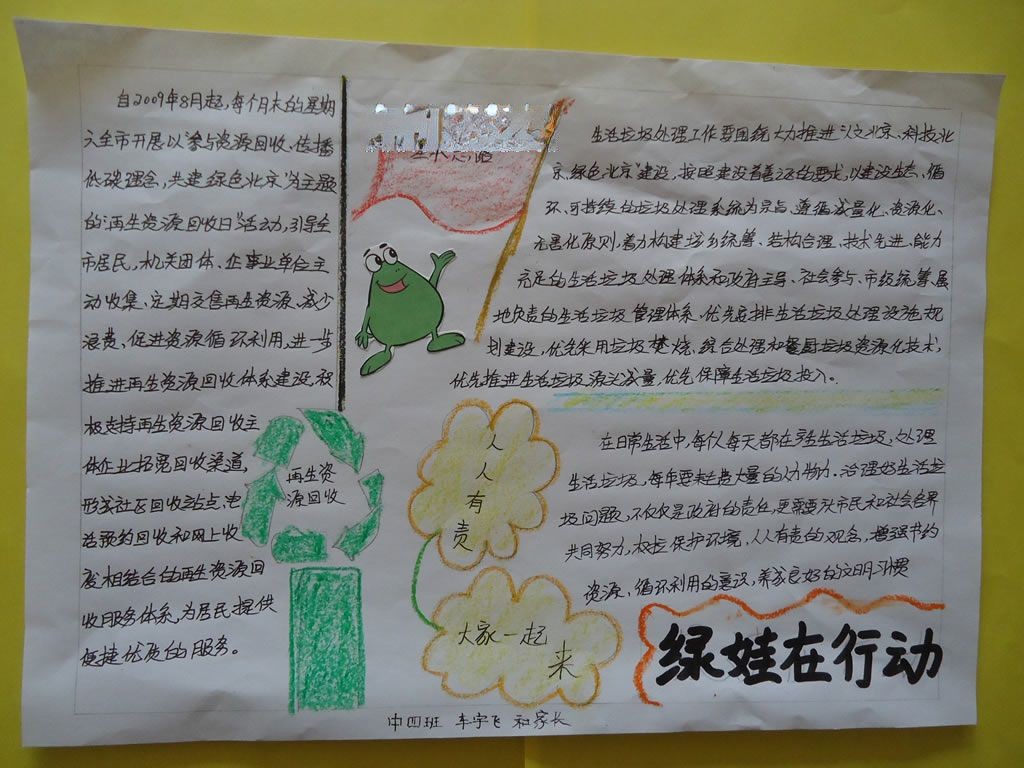 自2009年8月起,每个月末的星期
六全市开展以“参与资源回收、传播
低碳理念,共建绿色北京”为主题
的“再生资源回收日”活动,引导全
市居民,机关团体、企事业单位主
动收集、定期交售再生资源、减少
浪费、促进资源循环利用,进一步
推进再生资源回收体系建设,积
极支持再生资源回收主
体企业拓宽回收渠道,
形成社区回收站点,电
话预约回收和网上收
废相结合的再生资源回
收服务体系,为居民提供
便捷优质的服务。
再生资
源回收
生活垃圾处理工作要围绕大力推进“人文北京、科技北
京、绿色北京”建设,按照建设的要求,以建设生态、循
环、可持续的垃圾处理系统为宗旨,遵循减量化、资源化、
无害化原则,着力构建城乡统筹、结构合理、技术先进、能力
充足的生活垃圾处理体系和政府主导、社会参与、市级统筹、属
地负责的生活垃圾管理体系,优先安排生活垃圾处理设施规
划建设,优先采用垃圾焚烧、综合处理和餐厨垃圾资源化技术,
优先推进生活垃圾源头减量,优先保障生活垃圾投入。
人
人
有
责
大家一起
来
在日常生活中,每人每天都在产生生活垃圾,处理
生活垃圾,每年要花费大量的人力物力。治理好生活垃
圾问题,不仅仅是政府的责任,更需要市民和社会各界
共同努力,树立保护环境,人人有责的观念,增强节约
资源、循环利用的意识,养成良好的文明习惯
绿娃在行动
中四班 车宇飞 和家长